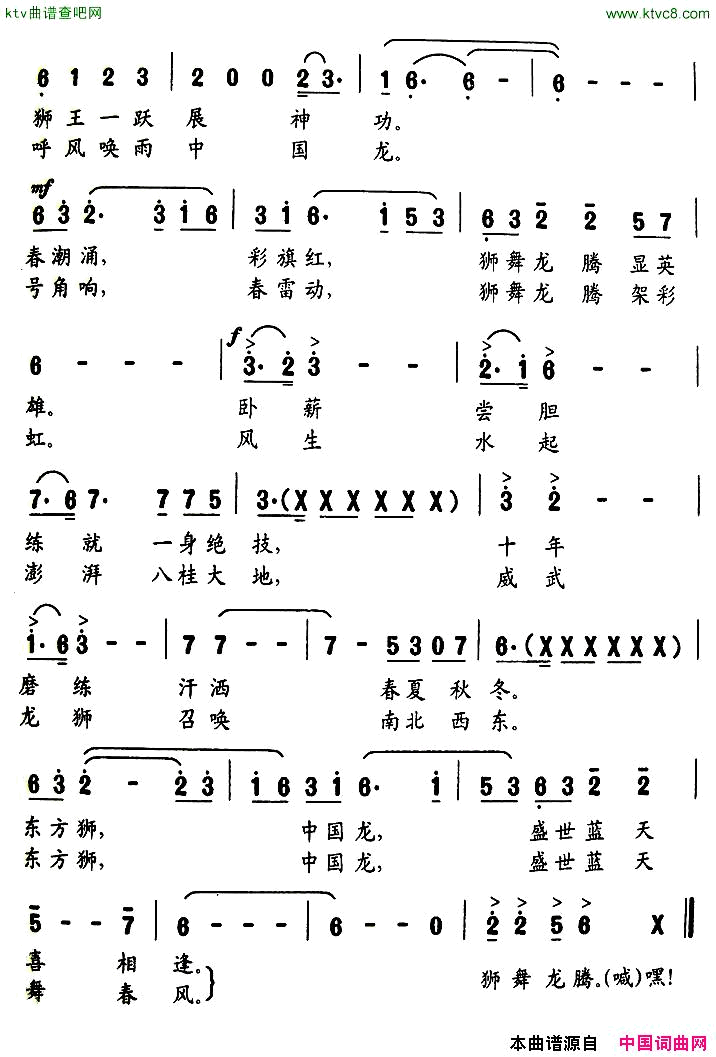 ktv曲谱查吧网 www.ktvc8.com
6 1 2 3 | 2 0 0 2 3· | 1 6· 6 - | 6 - - -
狮王一跃展 神 功。
呼风唤雨中 国 龙。
mf
6 3 2· 3 1 6 | 3 1 6· 1 5 3 | 6 3 2 2 5 7
春潮涌, 彩旗红, 狮舞龙 腾 显英
号角响, 春雷动, 狮舞龙 腾 架彩
f
6 - - - | 3· 2 3 - - | 2· 1 6 - -
雄。 卧 薪 尝 胆
虹。 风 生 水 起
7· 6 7· 7 7 5 | 3·(X X X X X X) | 3 2 - -
练 就 一身绝 技, 十 年
澎 湃 八桂大 地, 威 武
1· 6 3 - - | 7 7 - - | 7 - 5 3 0 7 | 6·(X X X X X X)
磨 练 汗 洒 春夏 秋 冬。
龙 狮 召 唤 南北 西 东。
6 3 2 - 2 3 | 1 6 3 1 6· 1 | 5 3 6 3 2 2
东方狮, 中国龙, 盛世蓝 天
东方狮, 中国龙, 盛世蓝 天
5 - - 7 | 6 - - - | 6 - - 0 | 2 2 5 6 X
喜 相 逢。
舞 春 风。
狮舞龙腾。(喊)嘿!
本曲谱源自 中国词曲网